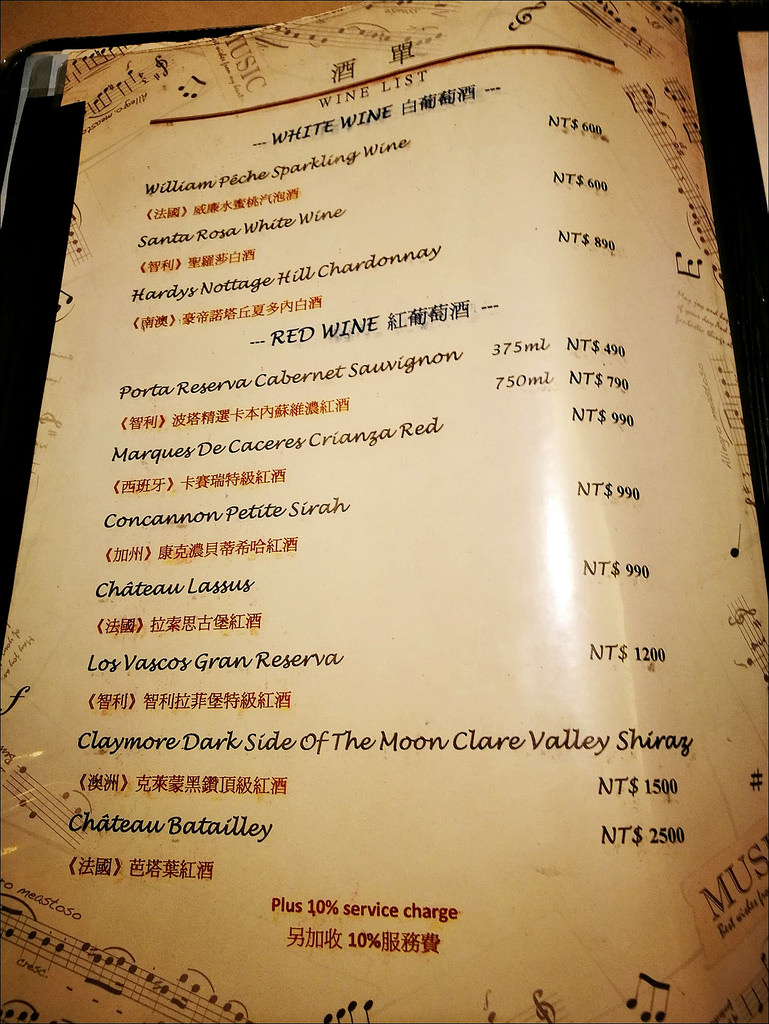 MUSIC
酒 單
WINE LIST
--- WHITE WINE 白葡萄酒 ---
William Pêche Sparkling Wine NT$ 600
《法國》威廉水蜜桃汽泡酒
Santa Rosa White Wine NT$ 600
《智利》聖羅莎白酒
Hardys Nottage Hill Chardonnay NT$ 890
《南澳》豪帝諾塔丘夏多內白酒
--- RED WINE 紅葡萄酒 ---
Porta Reserva Cabernet Sauvignon 375ml NT$ 490
750ml NT$ 790
《智利》波塔精選卡本內蘇維濃紅酒
Marques De Caceres Crianza Red NT$ 990
《西班牙》卡賽瑞特級紅酒
Concannon Petite Sirah NT$ 990
《加州》康克濃貝蒂希哈紅酒
Château Lassus NT$ 990
《法國》拉索思古堡紅酒
Los Vascos Gran Reserva NT$ 1200
《智利》智利拉菲堡特級紅酒
Claymore Dark Side Of The Moon Clare Valley Shiraz
《澳洲》克萊蒙黑鑽頂級紅酒 NT$ 1500
Château Batailley NT$ 2500
《法國》芭塔葉紅酒
Plus 10% service charge
另加收 10%服務費
Allegro meastoso
Allegro meastoso
meastoso
cresc.
MUS
Best wishes